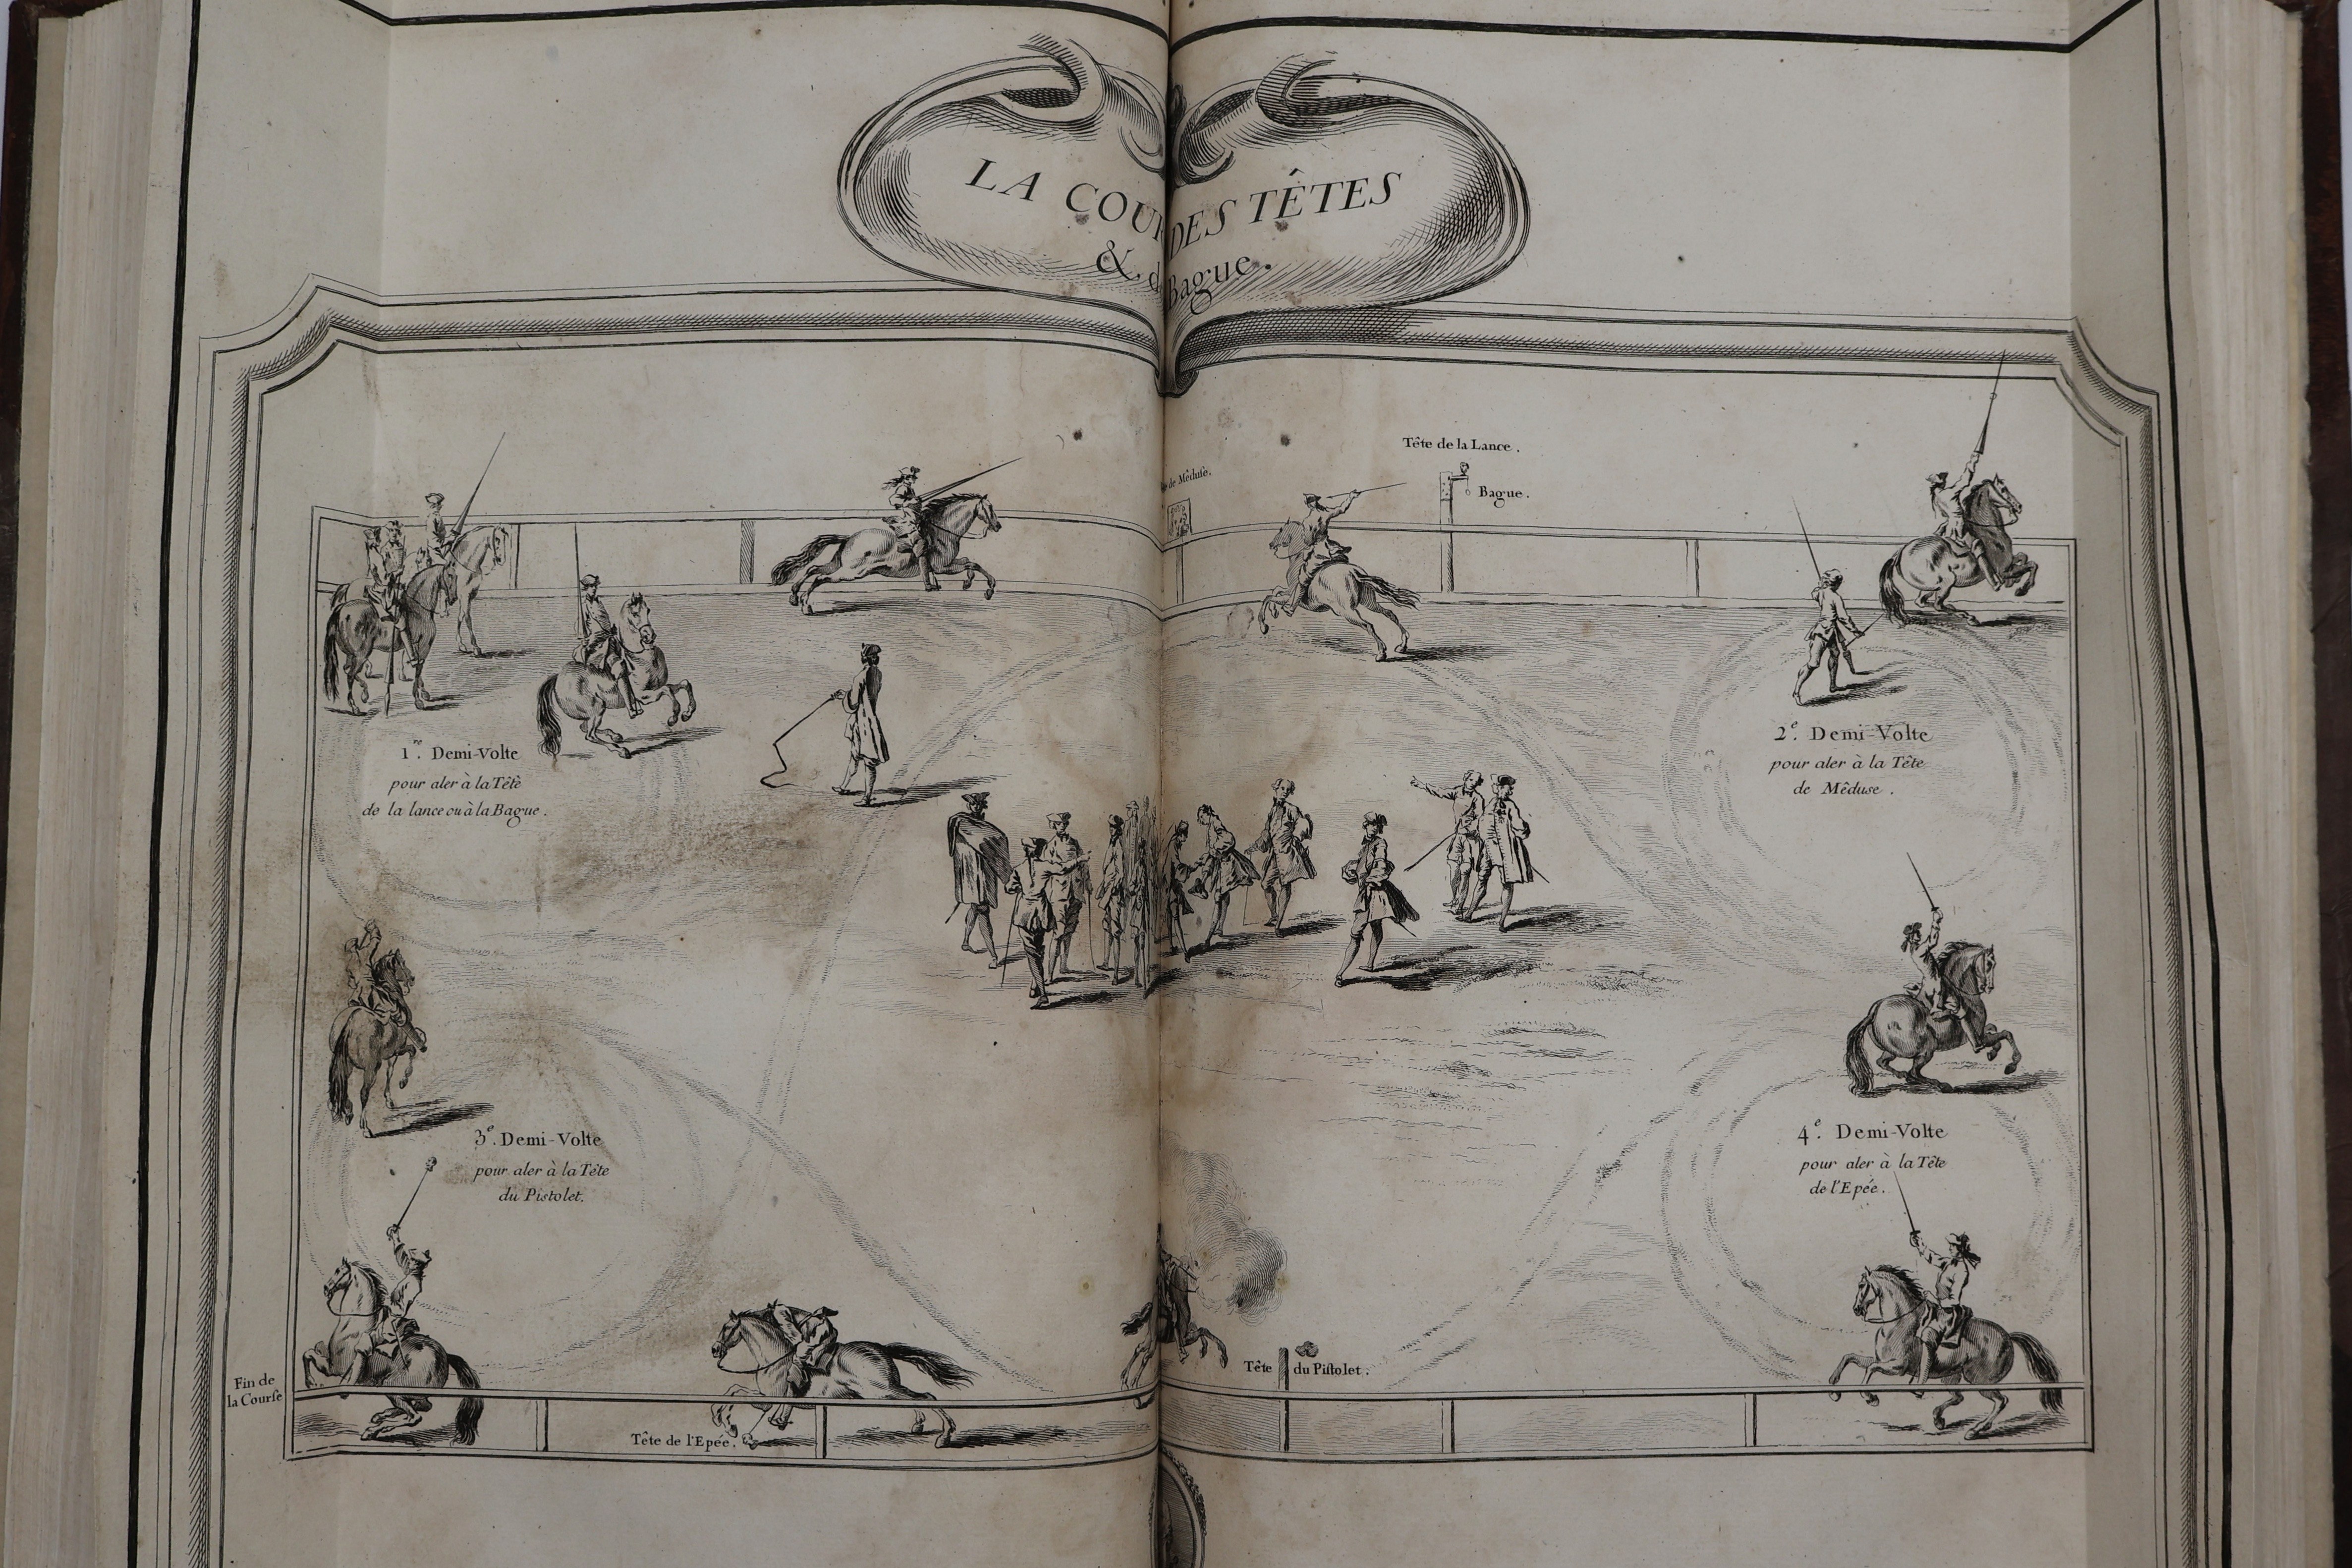 LA COU DES TÊTES
& d Bague.
Tête de la Lance.
de Mêduse.
Bague.
1.re Demi-Volte
pour aler à la Tête
de la lance ou à la Bague.
2.e Demi-Volte
pour aler à la Tête
de Mêduse.
3.e Demi-Volte
pour aler à la Tête
du Pistolet.
4.e Demi-Volte
pour aler à la Tête
de l'Epée.
Fin de
la Courſe
Tête du Piſtolet.
Tête de l'Epée.